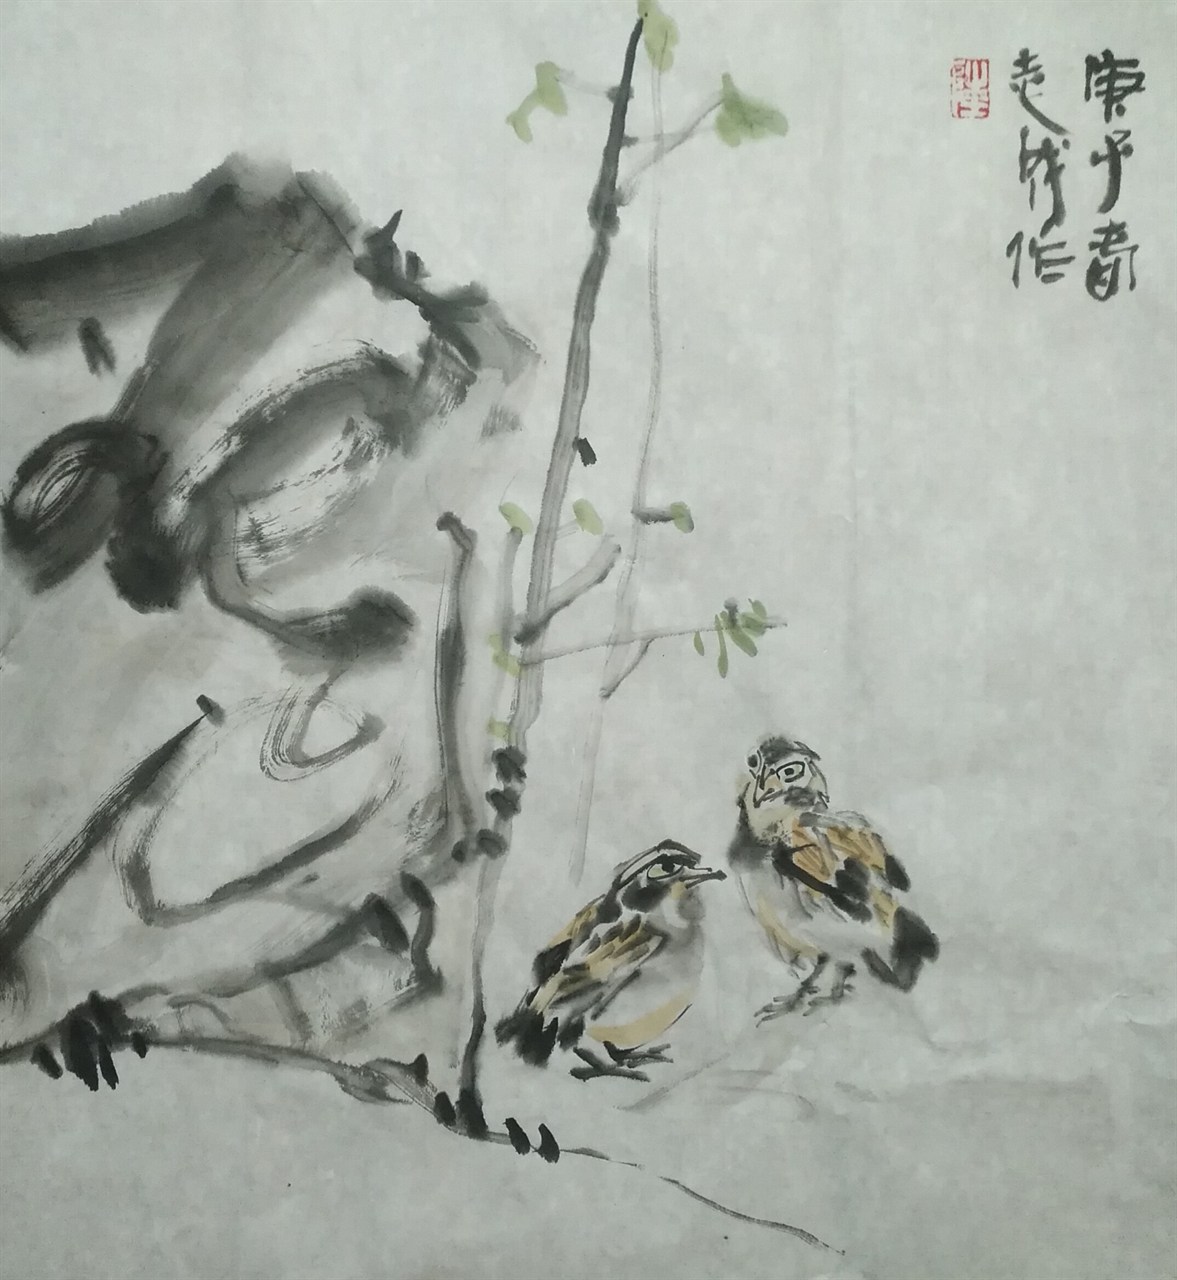 庚子春
志成作